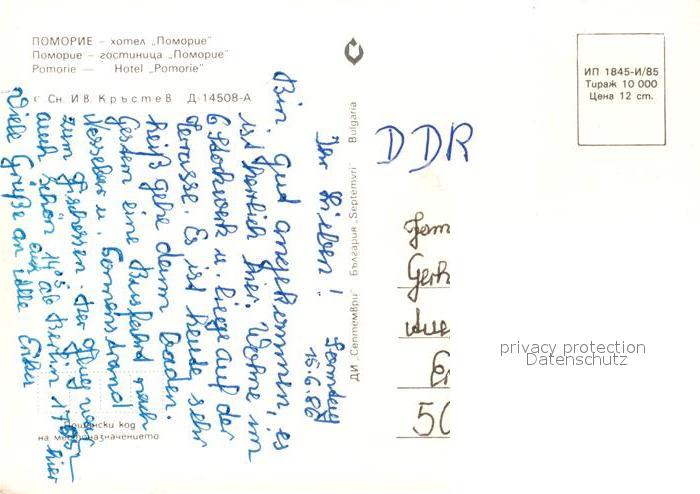 ПОМОРИЕ – хотел „Поморие"
Поморие – гостиница „Поморие"
Pomorie — Hotel „Pomorie"
Сн. Ив. Кръстев Д-14508-А
ИП 1845-И/85
Тираж 10 000
Цена 12 ст.
ДИ „Септември" България „Septemvri" Bulgaria
Ihr Lieben!
Sonntag
15.6.86
Bin gut angekommen, es
ist herrlich hier. Wohne im
6 Stockwerk u. liege auf der
Terasse. Es ist heute sehr
heiß gehe dann baden.
Gestern eine Busfahrt nach
Nessebar u.
zum Fischessen. Der Flug war
auch schön 14⁰⁵ ab Berlin 17 hier
Viele Grüße an alle
DDR
Gerh
50
privacy protection
Datenschutz
Пощенски код
на местоназначението